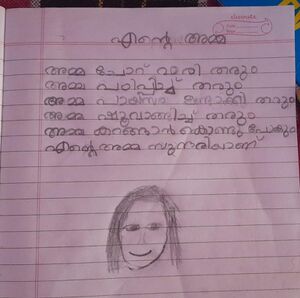 classmate
Date
Page
എന്റെ അമ്മ
അമ്മ ചോറ് വാരി തരും
അമ്മ പഠിപ്പിച്ച് തരും
അമ്മ പായസം ഉണ്ടാക്കി തരും
അമ്മ ഷൂവാങ്ങിച്ച് തരും
അമ്മ കറങ്ങാൻ കൊണ്ടു പോകും
എന്റെ അമ്മ സുന്ദരിയാണ്